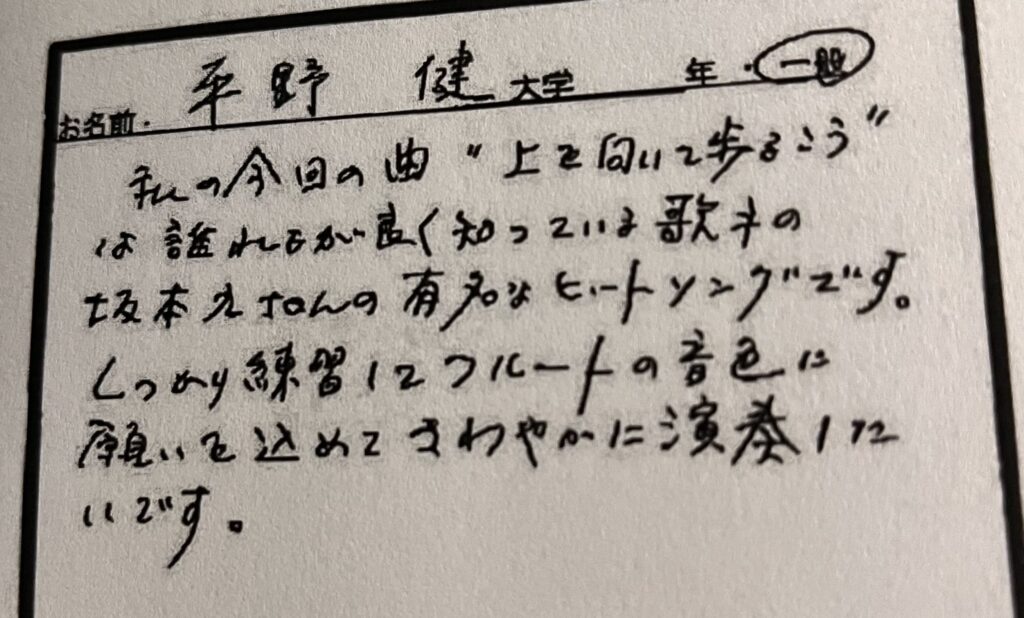 お名前. 平野 健 大学 年・一般
私の今回の曲〝上を向いて歩るこう〟
は誰れもが良く知っている歌手の
坂本九さんの有名なヒートソングです。
しっかり練習してフルートの音色に
願いを込めてさわやかに演奏した
いです。